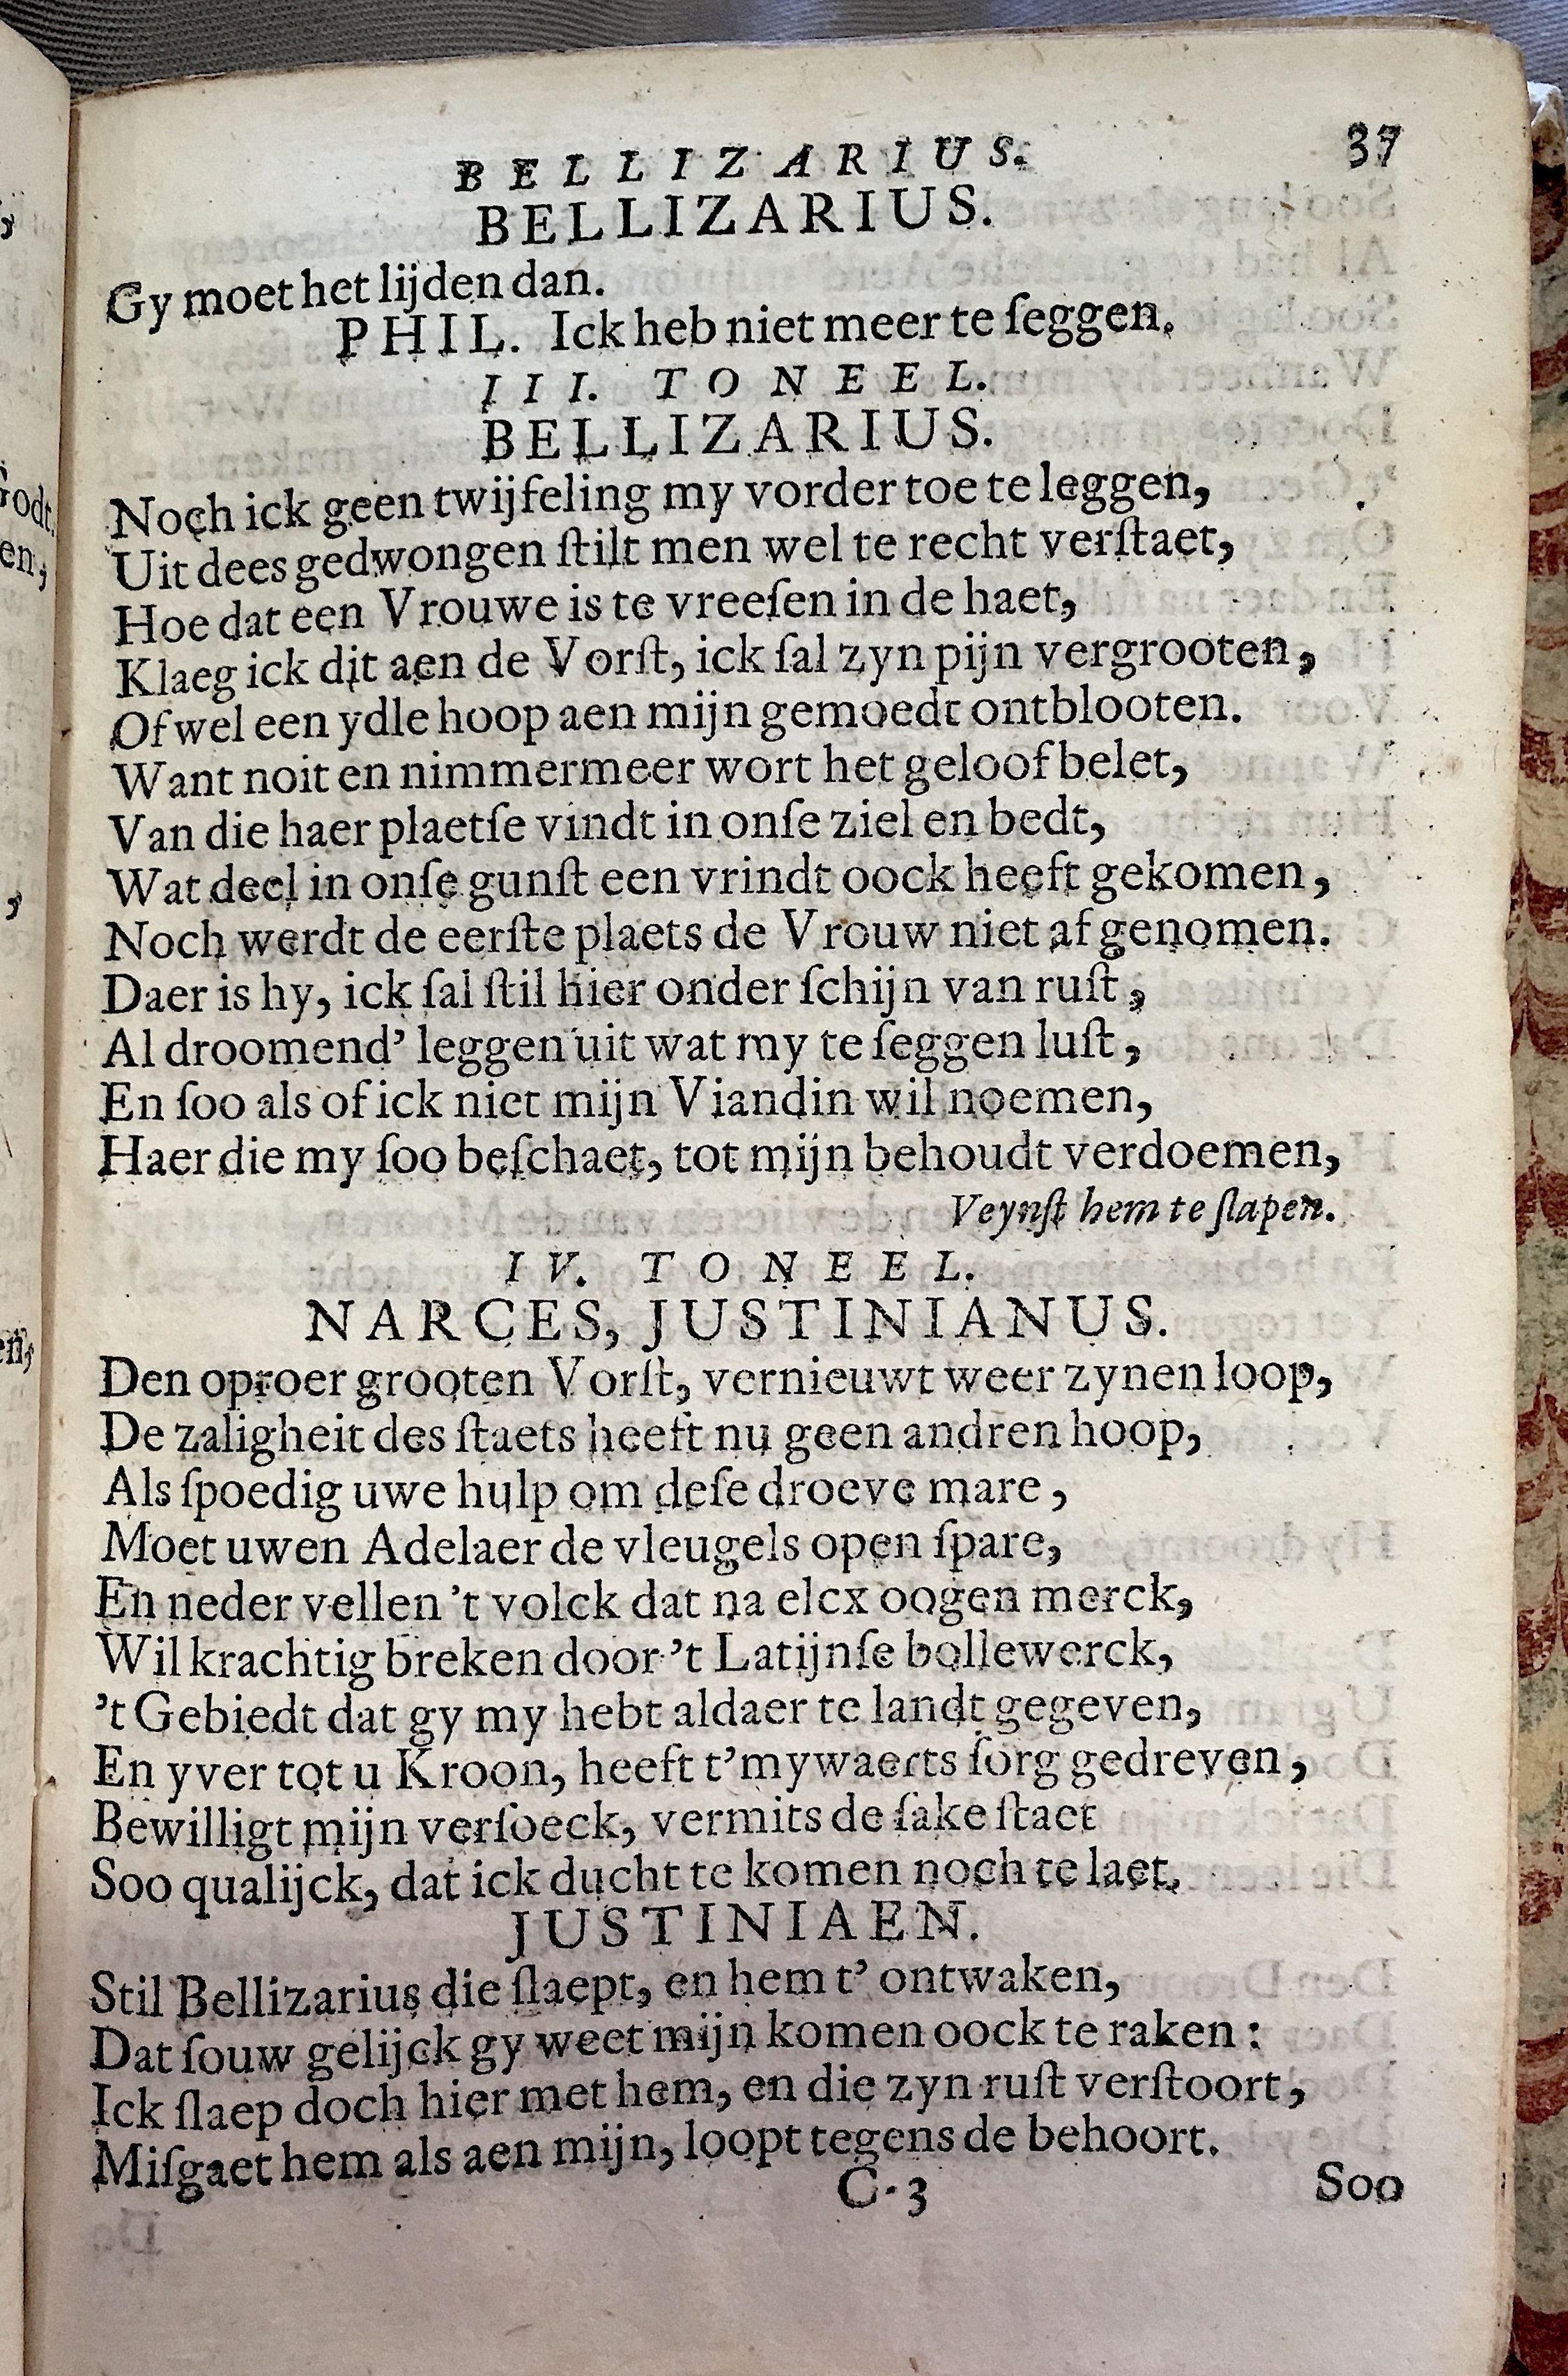 BELLIZARIUS. 37
BELLIZARIUS.
Gy moet het lijden dan.
PHIL. Ick heb niet meer te ſeggen.
III. TONEEL.
BELLIZARIUS.
Noch ick geen twijfeling my vorder toe te leggen,
Uit dees gedwongen ſtilt men wel te recht verſtaet,
Hoe dat een Vrouwe is te vreeſen in de haet,
Klaeg ick dit aen de Vorſt, ick ſal zyn pijn vergrooten,
Of wel een ydle hoop aen mijn gemoedt ontblooten.
Want noit en nimmermeer wort het geloof belet,
Van die haer plaetſe vindt in onſe ziel en bedt,
Wat deel in onſe gunſt een vrindt oock heeft gekomen,
Noch werdt de eerſte plaets de Vrouw niet af genomen.
Daer is hy, ick ſal ſtil hier onder ſchijn van ruſt,
Al droomend' leggen uit wat my te ſeggen luſt,
En ſoo als of ick niet mijn Viandin wil noemen,
Haer die my ſoo beſchaet, tot mijn behoudt verdoemen,
Veynſt hem te ſlapen.
IV. TONEEL.
NARCES, JUSTINIANUS.
Den oproer grooten Vorſt, vernieuwt weer zynen loop,
De zaligheit des ſtaets heeft nu geen andren hoop,
Als ſpoedig uwe hulp om deſe droeve mare,
Moet uwen Adelaer de vleugels open ſpare,
En neder vellen 't volck dat na elcx oogen merck,
Wil krachtig breken door 't Latijnſe bollewerck,
't Gebiedt dat gy my hebt aldaer te landt gegeven,
En yver tot u Kroon, heeft t'mywaerts ſorg gedreven,
Bewilligt mijn verſoeck, vermits de ſake ſtaet
Soo qualijck, dat ick ducht te komen noch te laet.
JUSTINIAEN.
Stil Bellizarius die ſlaept, en hem t' ontwaken,
Dat ſouw gelijck gy weet mijn komen oock te raken:
Ick ſlaep doch hier met hem, en die zyn ruſt verſtoort,
Miſgaet hem als aen mijn, loopt tegens de behoort.
C 3 Soo